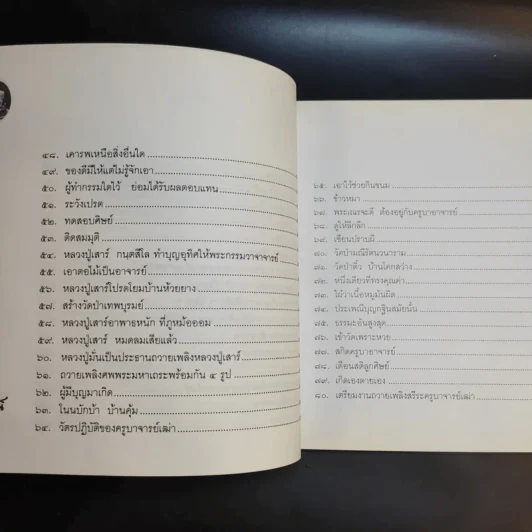 ๔๘. เคารพเหนือสิ่งอื่นใด
๔๙. ของดีมีให้แต่ไม่รู้จักเอา
๕๐. ผู้ทำกรรมใดไว้ ย่อมได้รับผลตอบแทน
๕๑. ระวังเปรต
๕๒. ทดสอบศิษย์
๕๓. ติดสมมุติ
๕๔. หลวงปู่เสาร์ กนฺตสีโล ทำบุญอุทิศให้พระกรรมวาจาจารย์
๕๕. เอาตอไม้เป็นอาจารย์
๕๖. หลวงปู่เสาร์โปรดโยมบ้านห้วยยาง
๕๗. สร้างวัดป่าเทพบุรมย์
๕๘. หลวงปู่เสาร์อาพาธหนัก ที่ภูหม้อออม
๕๙. หลวงปู่เสาร์ หมดลมเสียแล้ว
๖๐. หลวงปู่มั่นเป็นประธานถวายเพลิงหลวงปู่เสาร์
๖๑. ถวายเพลิงศพพระมหาเถระพร้อมกัน ๔ รูป
๖๒. ผู้มีบุญมาเกิด
๖๓. โนนบักบ้า บ้านคุ้ม
๖๔. วัตรปฏิบัติของครูบาจารย์เฒ่า
๖๕. เอาไว้ช่วยกินขนม
๖๖. ข้าวหมา
๖๗. พระเณรจะดี ต้องอยู่กับครูบาอาจารย์
๖๘. ดูให้ลึกลึก
๖๙. เซียนปราบผี
๗๐. วัดป่ามณีรัตนวนาราม
๗๑. วัดป่าติ้ว บ้านโคกสว่าง
๗๒. หนึ่งเดียวที่ทรงคุณค่า
๗๓. ไผ่ว่าเนื้อหมูมันผิด
๗๔. ประเพณีบุญกฐินสมัยนั้น
๗๕. ธรรมะอันสูงสุด
๗๖. เข้าวัดเพราะหวย
๗๗. สกิดครูบาอาจารย์
๗๘. เตือนสติลูกศิษย์
๗๙. เกิดเองตายเอง
๘๐. เตรียมงานถวายเพลิงสรีระครูบาจารย์เฒ่า